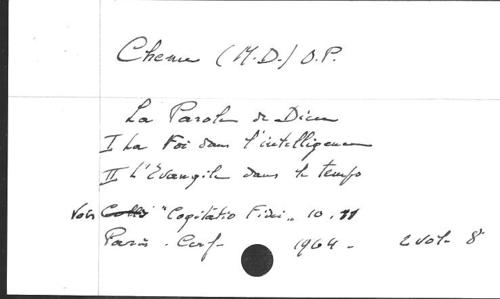 Chenu (M.D.) O.P.
La Parole de Dieu
I La Foi dans l'intelligence
II L'Evangile dans le temps
"Cogitatio Fidei" 10. 11
Paris. Cerf- 1964- 2 vol- 8°